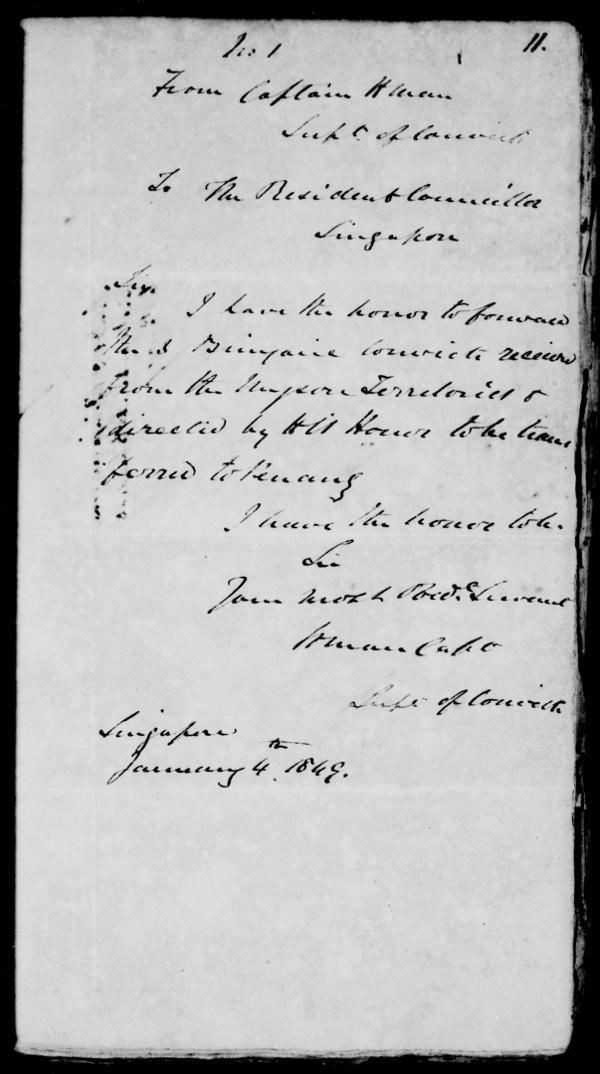 No 1 11.
From Captain H Man
Supt. of Convicts
To The Resident Councillor
Singapore
Sir,
I have the honor to forward
the Convicts received
from the Mysore Territories &
directed by His Honor to be trans
ferred to Penang
I have the honor to be
Sir
Your most Obedt. Servant
H Man Capt
Supt of Convicts
Singapore
January 4th 1849.